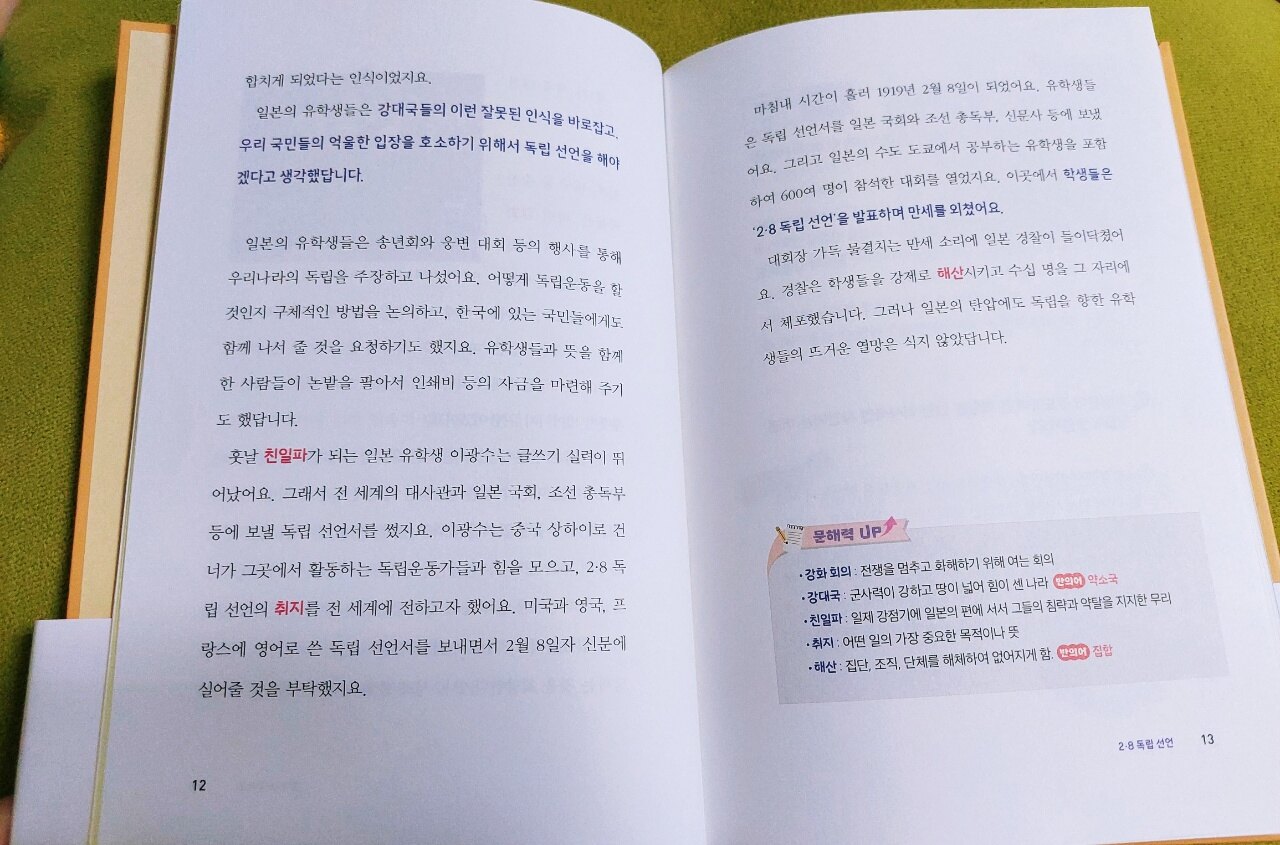 합치게 되었다는 인식이었지요.
일본의 유학생들은 강대국들의 이런 잘못된 인식을 바로잡고,
우리 국민들의 억울한 입장을 호소하기 위해서 독립 선언을 해야
겠다고 생각했답니다.
일본의 유학생들은 송년회와 웅변 대회 등의 행사를 통해
우리나라의 독립을 주장하고 나섰어요. 어떻게 독립운동을 할
것인지 구체적인 방법을 논의하고, 한국에 있는 국민들에게도
함께 나서 줄 것을 요청하기도 했지요. 유학생들과 뜻을 함께
한 사람들이 논밭을 팔아서 인쇄비 등의 자금을 마련해 주기
도 했답니다.
훗날 친일파가 되는 일본 유학생 이광수는 글쓰기 실력이 뛰
어났어요. 그래서 전 세계의 대사관과 일본 국회, 조선 총독부
등에 보낼 독립 선언서를 썼지요. 이광수는 중국 상하이로 건
너가 그곳에서 활동하는 독립운동가들과 힘을 모으고, 2·8 독
립 선언의 취지를 전 세계에 전하고자 했어요. 미국과 영국, 프
랑스에 영어로 쓴 독립 선언서를 보내면서 2월 8일자 신문에
실어줄 것을 부탁했지요.
12
마침내 시간이 흘러 1919년 2월 8일이 되었어요. 유학생들
은 독립 선언서를 일본 국회와 조선 총독부, 신문사 등에 보냈
어요. 그리고 일본의 수도 도쿄에서 공부하는 유학생을 포함
하여 600여 명이 참석한 대회를 열었지요. 이곳에서 학생들은
‘2·8 독립 선언’을 발표하며 만세를 외쳤어요.
대회장 가득 물결치는 만세 소리에 일본 경찰이 들이닥쳤어
요. 경찰은 학생들을 강제로 해산시키고 수십 명을 그 자리에
서 체포했습니다. 그러나 일본의 탄압에도 독립을 향한 유학
생들의 뜨거운 열망은 식지 않았답니다.
문해력 UP
· 강화 회의 : 전쟁을 멈추고 화해하기 위해 여는 회의
· 강대국 : 군사력이 강하고 땅이 넓어 힘이 센 나라 반의어 약소국
· 친일파 : 일제 강점기에 일본의 편에 서서 그들의 침략과 약탈을 지지한 무리
· 취지 : 어떤 일의 가장 중요한 목적이나 뜻
· 해산 : 집단, 조직, 단체를 해체하여 없어지게 함. 반의어 집합
2·8 독립 선언 13